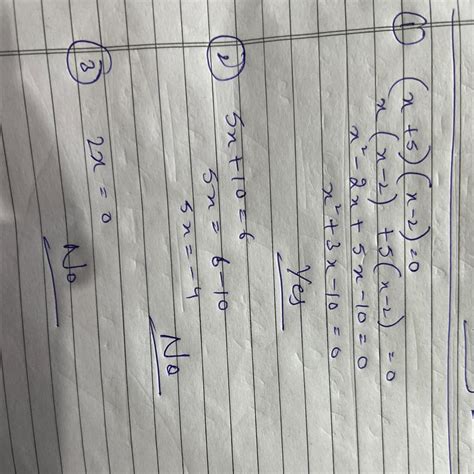 (1) (x+5)(x-2)=0
x(x-2)+5(x-2)=0
x²-2x+5x-10=0
x²+3x-10=0
Yes
(2) 5x+10=6
5x=6-10
5x=-4
No
(3) 2x=0
No